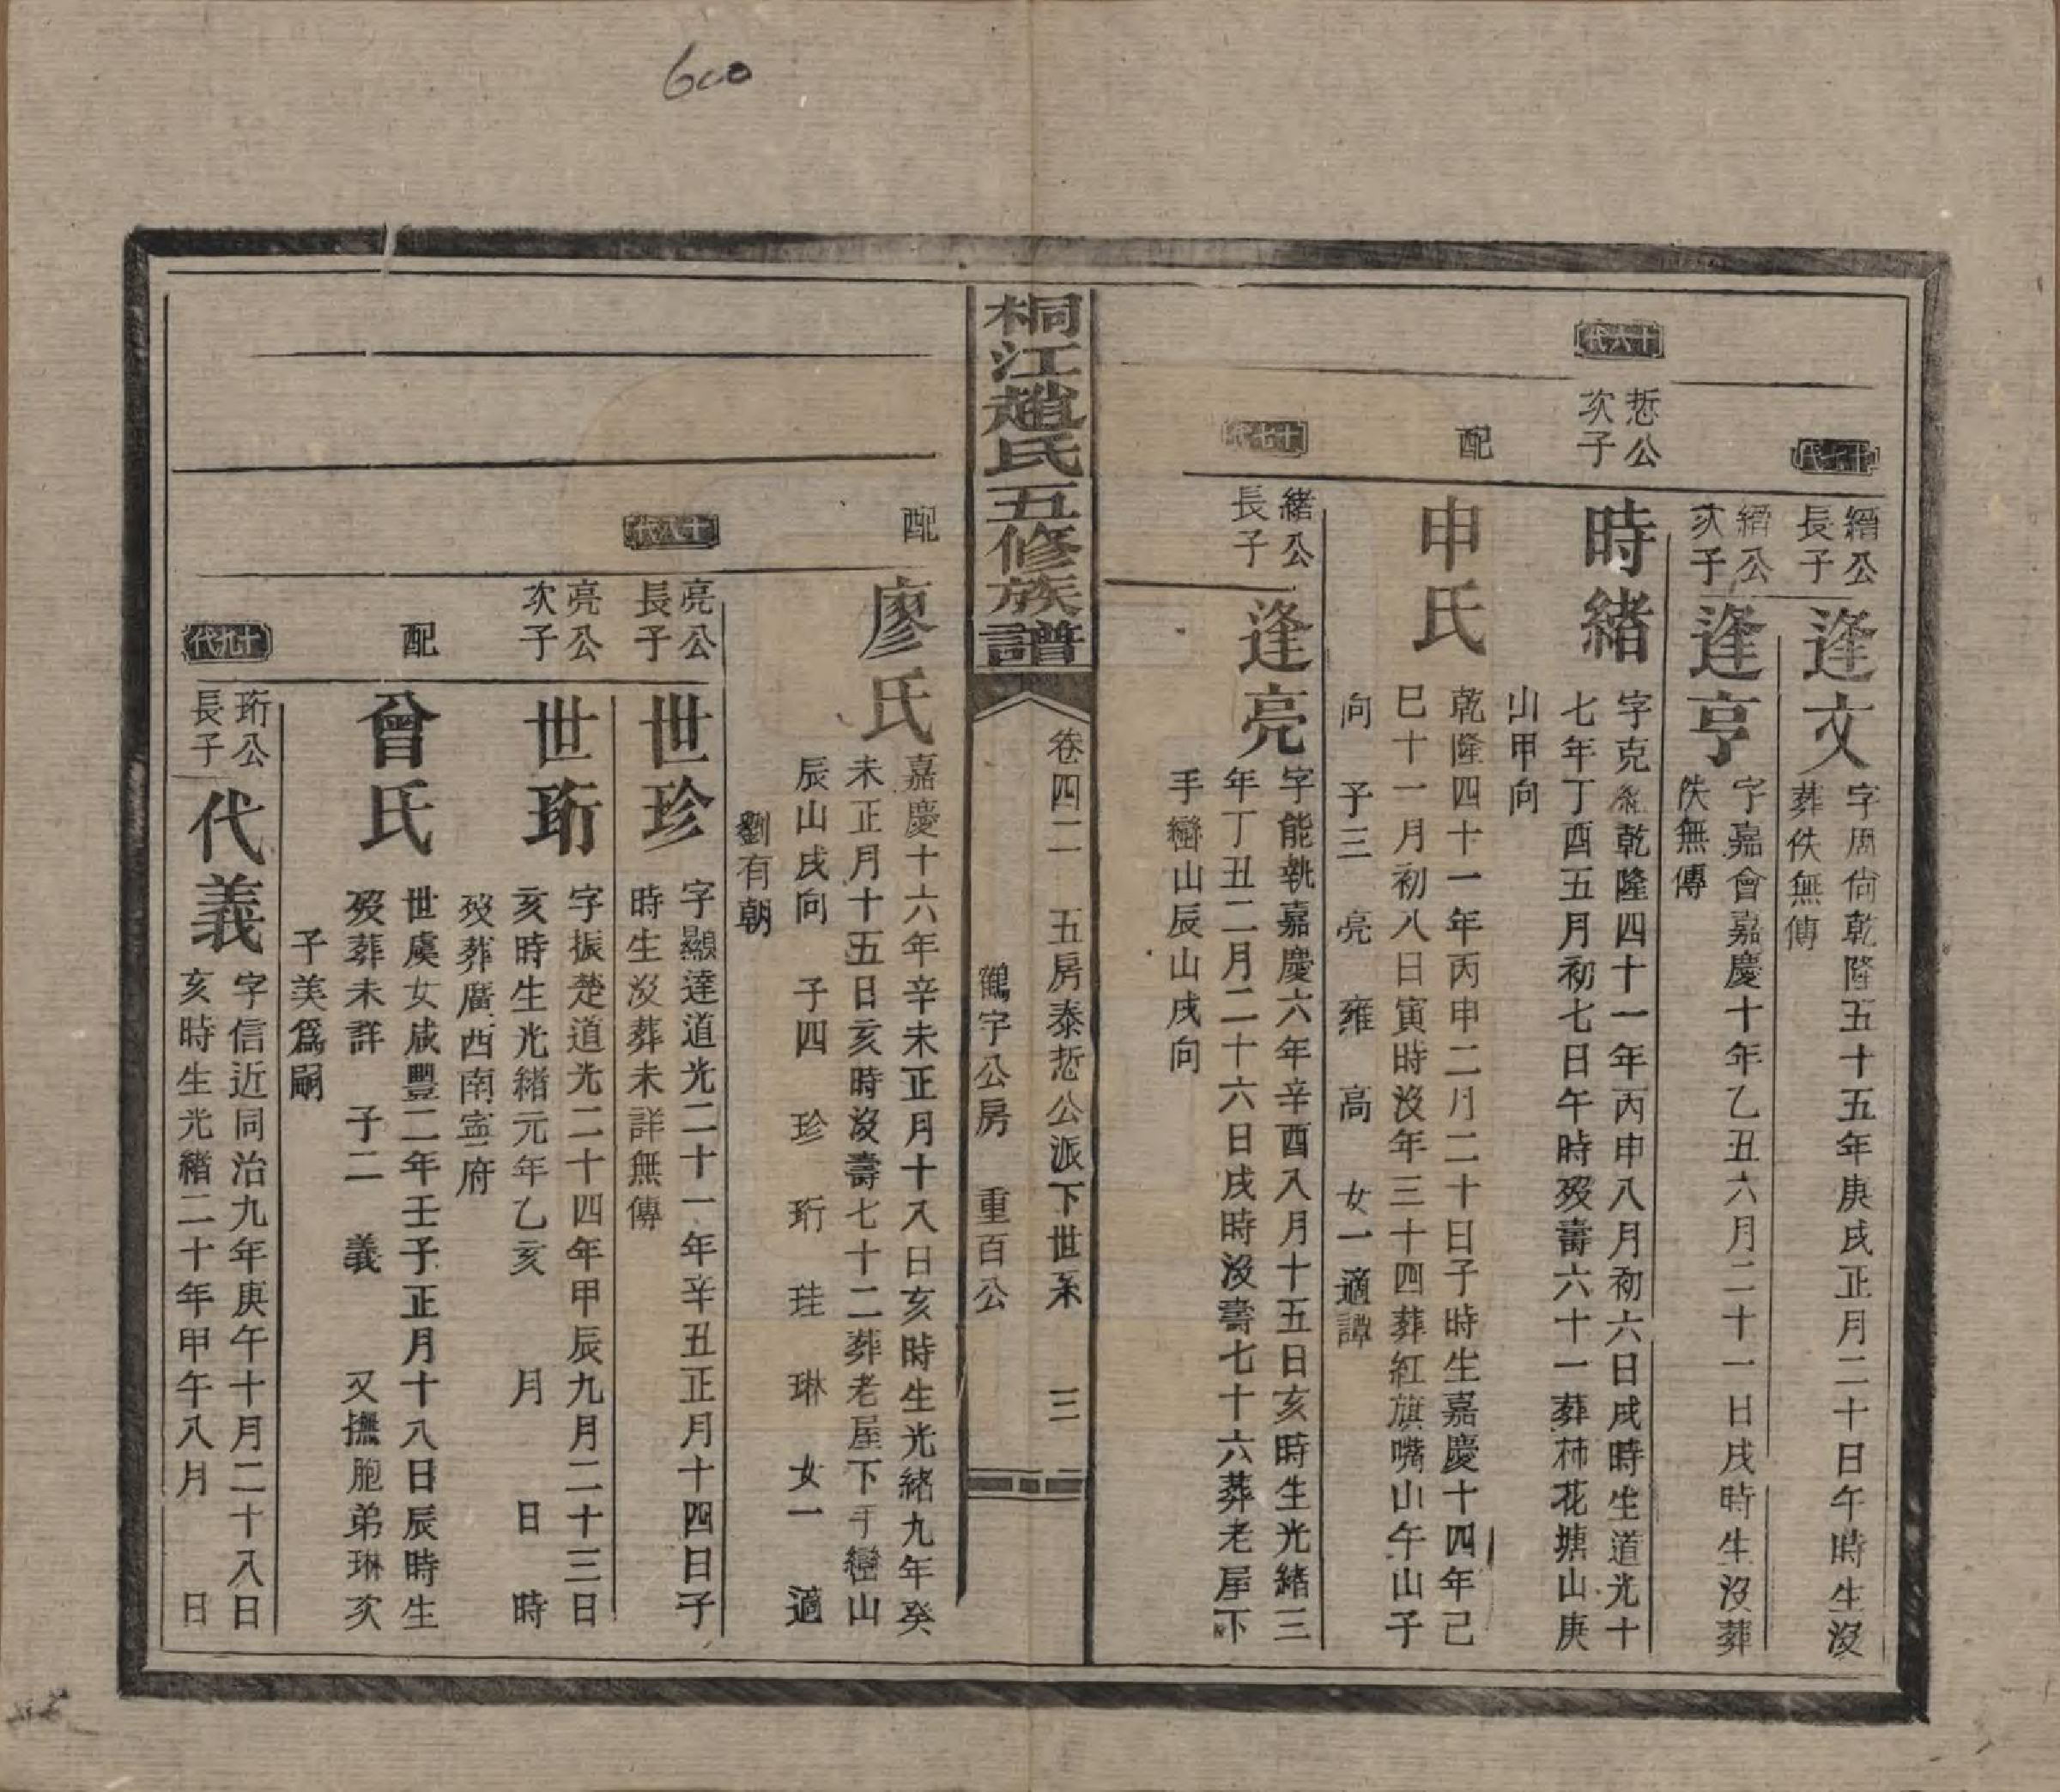 600
十七代
縉公
長子
逢文
字周尙乾隆五十五年庚戌正月二十日午時生沒
葬佚無傳
縉公
次子
逢亨
字嘉會嘉慶十年乙丑六月二十一日戌時生沒葬
佚無傳
十六代
悊公
次子
時緒
字克紹乾隆四十一年丙申八月初六日戌時生道光十
七年丁酉五月初七日午時歿壽六十一葬柿花塘山庚
山甲向
配
申氏
乾隆四十一年丙申二月二十日子時生嘉慶十四年己
巳十一月初八日寅時沒年三十四葬紅旗嘴山午山子
向 子三 亮 雍 高 女一適譚
十七代
緒公
長子
逢亮
字能執嘉慶六年辛酉八月十五日亥時生光緒三
年丁丑二月二十六日戌時沒壽七十六葬老屋下
手巒山辰山戌向
桐江趙氏五修族譜
卷四二 五房泰悊公派下世系 三
鶴字公房 重百公
配
廖氏
嘉慶十六年辛未正月十八日亥時生光緒九年癸
未正月十五日亥時沒壽七十二葬老屋下手巒山
辰山戌向 子四 珍 珩 珪 琳 女一 適
劉有朝
十八代
亮公
長子
世珍
字顯達道光二十一年辛丑正月十四日子
時生沒葬未詳無傳
亮公
次子
世珩
字振楚道光二十四年甲辰九月二十三日
亥時生光緒元年乙亥 月 日 時
歿葬廣西南寍府
配
曾氏
世虞女咸豐二年壬子正月十八日辰時生
歿葬未詳 子二 義 又撫胞弟琳次
子美爲嗣
十九代
珩公
長子
代義
字信近同治九年庚午十月二十八日
亥時生光緒二十年甲午八月 日